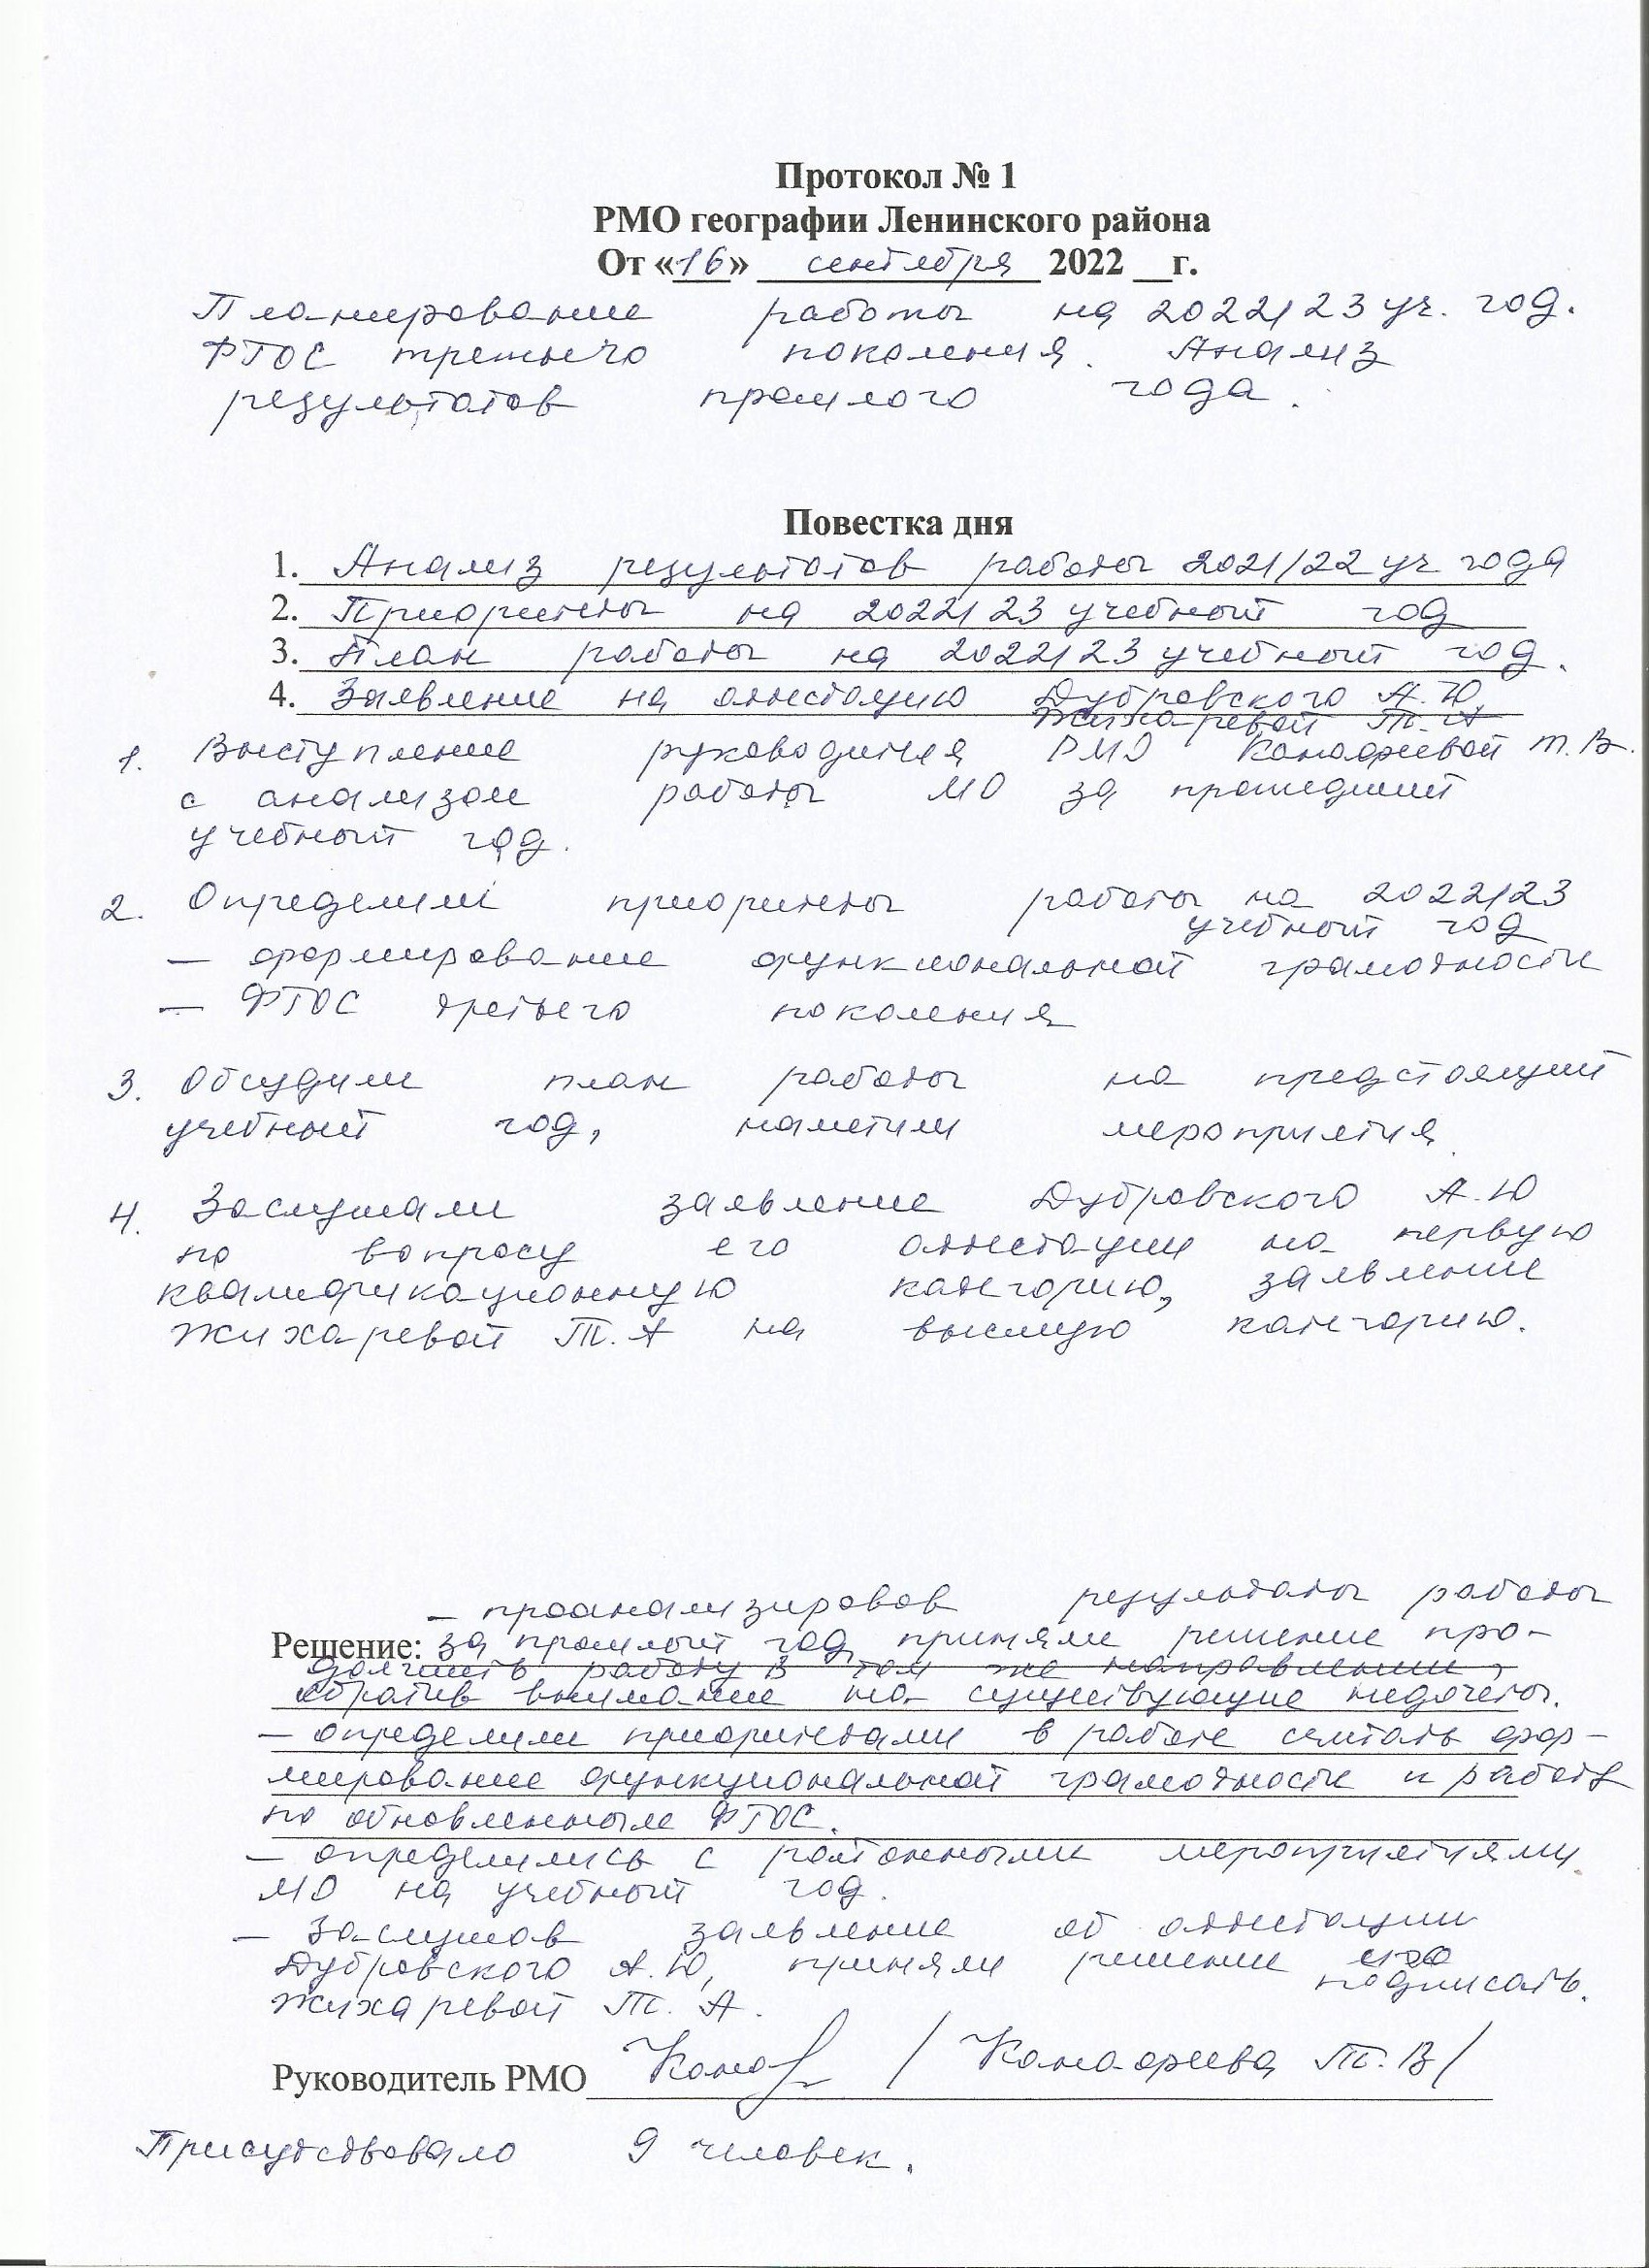 Протокол № 1
РМО географии Ленинского района
От «16» сентября 2022 __г.
Планирование работы на 2022/23 уч. год.
ФГОС третьего поколения. Анализ
результатов прошлого года.
Повестка дня
1. Анализ результатов работы 2021/22 уч года
2. Приоритеты на 2022/23 учебный год
3. План работы на 2022/23 учебный год.
4. Заявление на аттестацию Дубровского А.Ю
Жихаревой Т.А
1. Выступление руководителя РМО Канафеевой Т.В.
с анализом работы МО за прошедший
учебный год.
2. Определили приоритеты работы на 2022/23
учебный год
— формирование функциональной грамотности
— ФГОС третьего поколения
3. Обсудили план работы на предстоящий
учебный год, наметили мероприятия.
4. Заслушали заявление Дубровского А.Ю
по вопросу его аттестации на первую
квалификационную категорию, заявление
Жихаревой Т.А на высшую категорию.
– проанализировав результаты работы
Решение: за прошлый год, приняли решение про-
должить работу в том же направлении,
обратив внимание на существующие недочеты.
– определили приоритетами в работе считать фор-
мирование функциональной грамотности и работу
по обновленным ФГОС.
– определились с районными мероприятиями
МО на учебный год.
– Заслушав заявление об аттестации
Дубровского А.Ю, приняли решение его
подписать.
Жихаревой Т. А.
Руководитель РМО / Канафеева Т.В/
Присутствовало 9 человек.